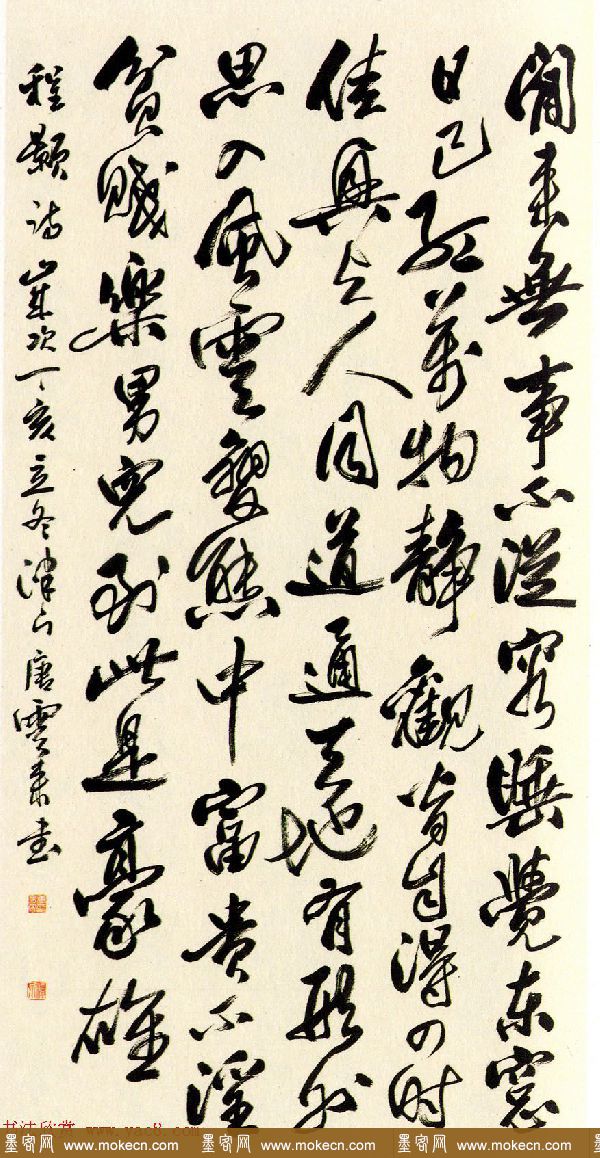 閒來無事不從容睡覺東窓
日已紅萬物靜觀皆自得四時
佳興与人同道通天地有形外
思入風雲變態中富貴不淫
貧賤樂男兒到此是豪雄
程顥詩歲次丁亥立冬津門唐雲來書
书法欣赏 www.yac8.com
墨客网 www.mokecn.com 墨客网 www.mokecn.com 墨客网 www.mokecn.com